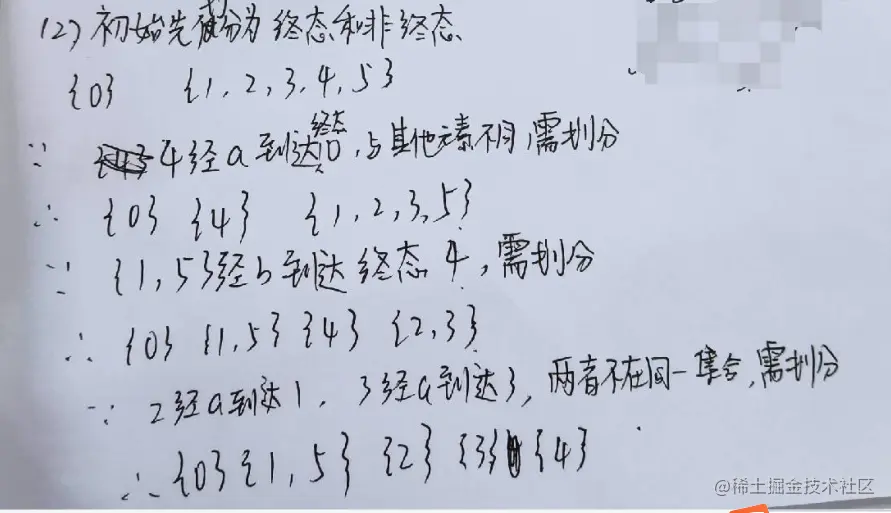 (2) 初始先划分为 终态和非终态
{0} {1, 2, 3, 4, 5}
∵ 4经a到达终态0, 与其他元素不同, 需划分
∴ {0} {4} {1, 2, 3, 5}
∵ {1, 5}经b到达终态 4, 需划分
∴ {0} {1, 5} {4} {2, 3}
∵ 2经a到达1, 3经a到达3, 两者不在同一集合, 需划分
∴ {0} {1, 5} {2} {3} {4}
@稀土掘金技术社区